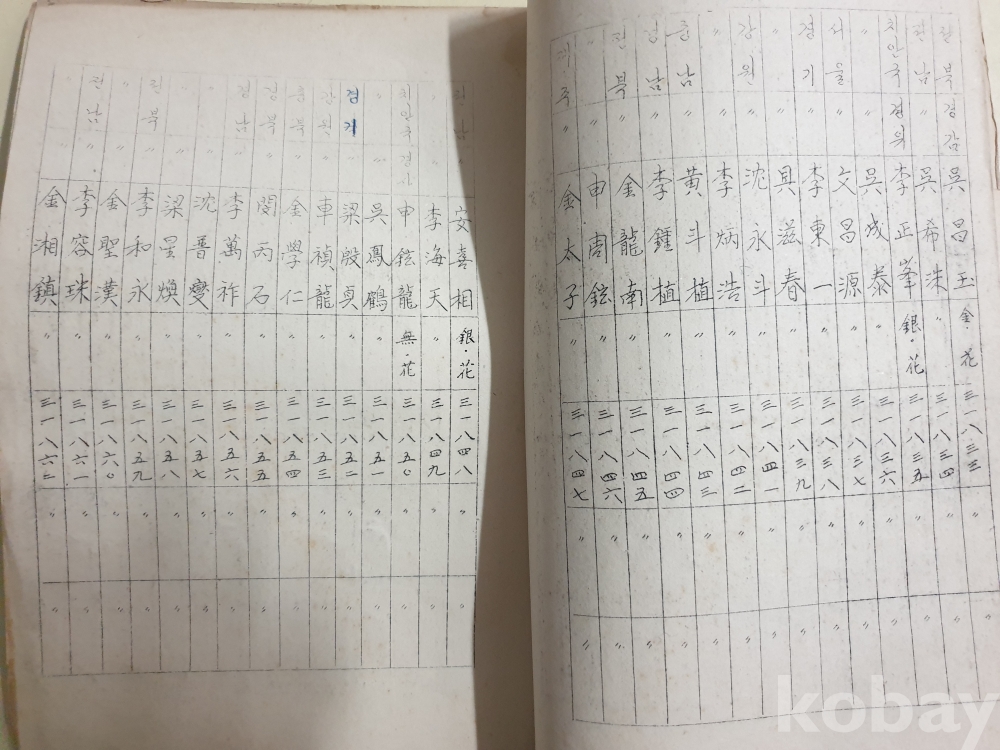 전북 경감 吳昌玉 金·花 三一八三三 〃 〃
전남 〃 吳希洙 〃 三一八三四 〃 〃
치안국 경위 李正峯 銀·花 三一八三五 〃 〃
〃 〃 吳成泰 〃 三一八三六 〃 〃
서울 〃 文昌源 〃 三一八三七 〃 〃
경기 〃 李東一 〃 三一八三八 〃 〃
〃 〃 具滋春 〃 三一八三九 〃 〃
강원 〃 沈永斗 〃 三一八四一 〃 〃
〃 〃 李炳浩 〃 三一八四二 〃 〃
충남 〃 黃斗植 〃 三一八四三 〃 〃
경남 〃 李鍾植 〃 三一八四四 〃 〃
전북 〃 金龍南 〃 三一八四五 〃 〃
〃 〃 申周鉉 〃 三一八四六 〃 〃
제주 〃 金太子 〃 三一八四七 〃 〃
전남 〃 安喜相 銀·花 三一八四八 〃 〃
〃 〃 李海天 〃 三一八四九 〃 〃
치안국 경사 申鉉龍 無·花 三一八五〇 〃 〃
〃 〃 吳鳳鶴 〃 三一八五一 〃 〃
경기 〃 梁殷貞 〃 三一八五二 〃 〃
강원 〃 車禎龍 〃 三一八五三 〃 〃
충북 〃 金學仁 〃 三一八五四 〃 〃
경북 〃 閔丙石 〃 三一八五五 〃 〃
경남 〃 李萬祚 〃 三一八五六 〃 〃
〃 〃 沈普燮 〃 三一八五七 〃 〃
〃 〃 梁星煥 〃 三一八五八 〃 〃
전북 〃 李和永 〃 三一八五九 〃 〃
〃 〃 金聖漢 〃 三一八六〇 〃 〃
전남 〃 李容珠 〃 三一八六一 〃 〃
〃 〃 金湘鎮 〃 三一八六二 〃 〃
kobay